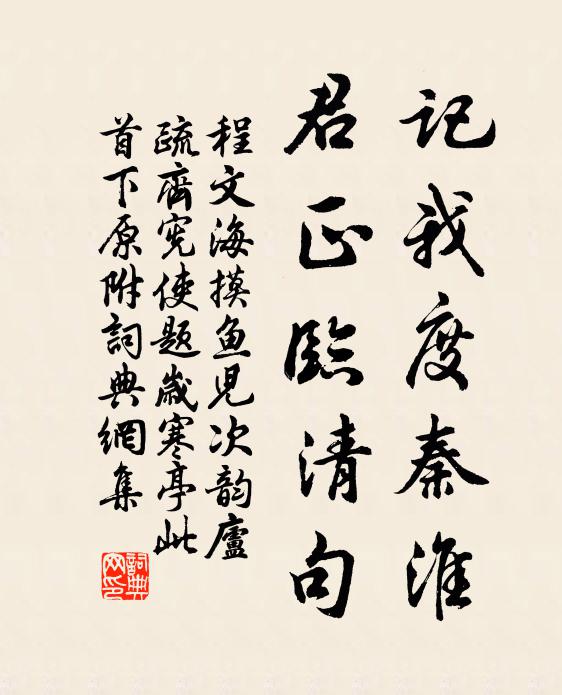 記我度秦淮
君正臨清句
程文海摸鱼児次韵廬
疏齊宪使題歲寒亭此
首下原附詞典網集
詞典
网印